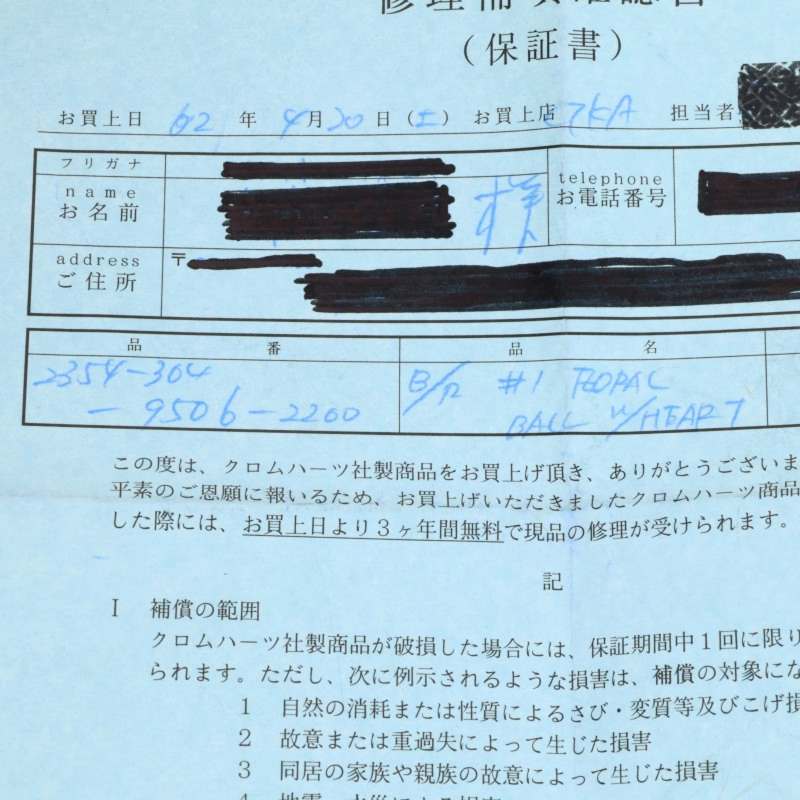 修理補填確認書
(保証書)
お買上日 02 年 4月 20 日 (土) お買上店 担当者
フリガナ
name
お名前
様
telephone
お電話番号
address
ご住所
〒
品 番
品 名
2354-304
-9506-2200
B/R #1 FLORAL
BALL W/HEART
この度は、クロムハーツ社製商品をお買上げ頂き、ありがとうございま
平素のご恩顧に報いるため、お買上げいただきましたクロムハーツ商品
した際には、お買上日より3ヶ年間無料で現品の修理が受けられます。
記
I 補償の範囲
クロムハーツ社製商品が破損した場合には、保証期間中1回に限り
られます。ただし、次に例示されるような損害は、補償の対象にな
1 自然の消耗または性質によるさび・変質等及びこげ損
2 故意または重過失によって生じた損害
3 同居の家族や親族の故意によって生じた損害